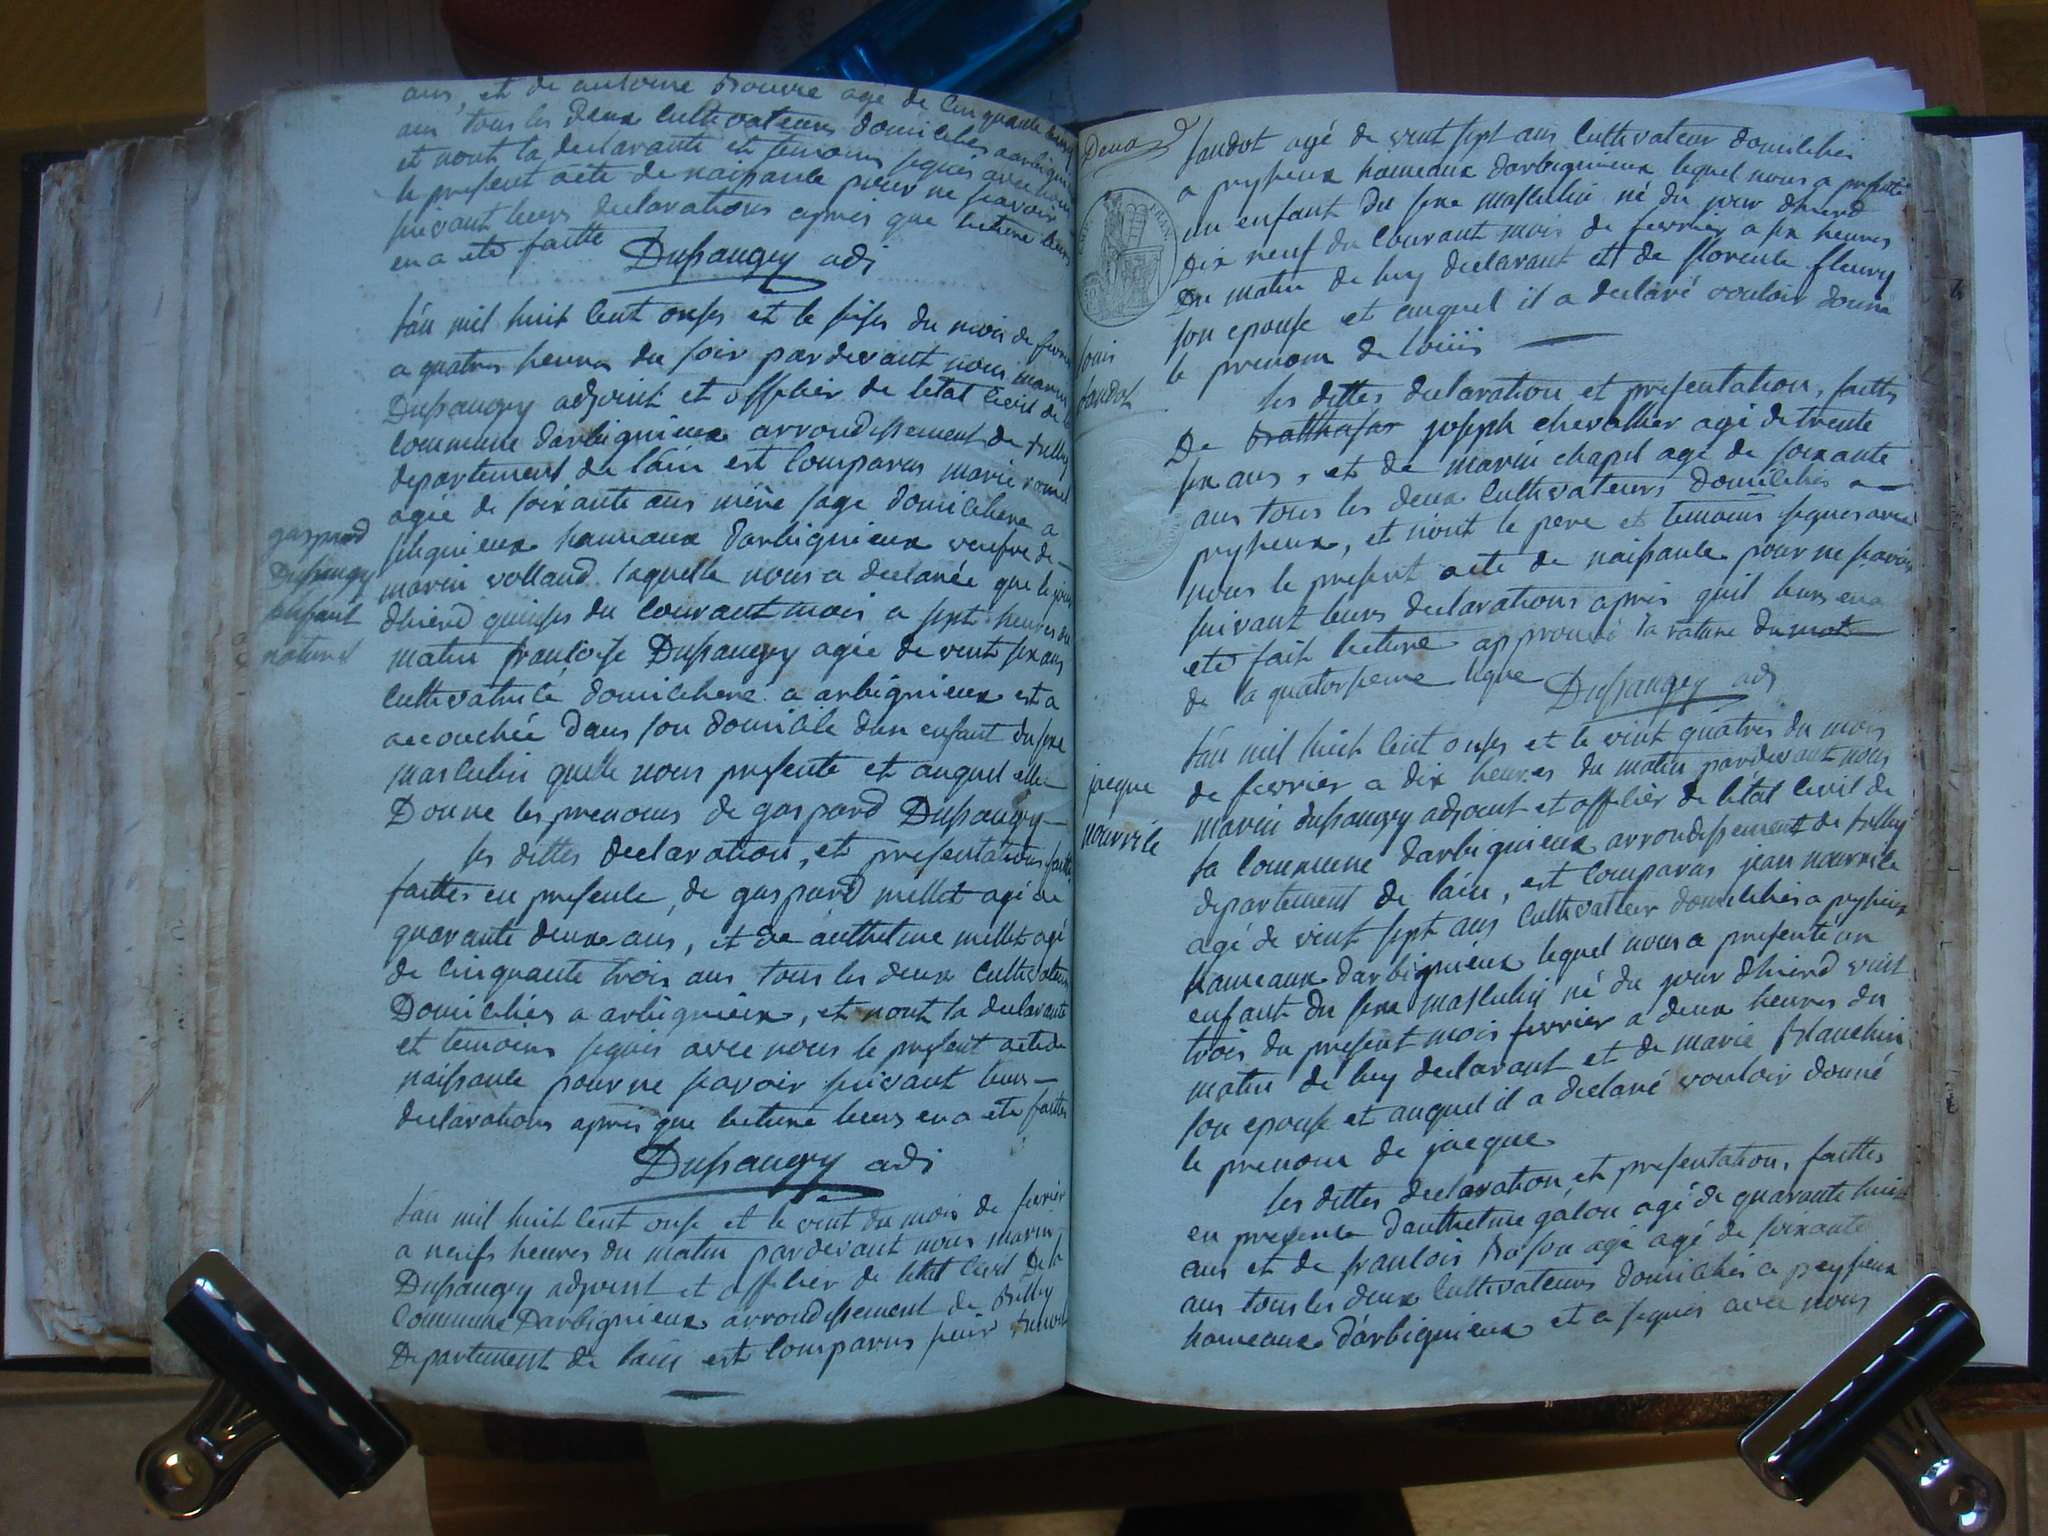 ans, et de antoine Bouvre agé de cinquante
ans tous les deux cultivateurs domiciliés a arbignieu
et nont la declarante et temoins signés avec nous
le present acte de naissance pour ne scavoir
suivant leurs declarations apres que lecture leurs
en a eté faitte
Dussaugey adj
Lan mil huit cent onses et le seises du mois de fevrier
a quatres heures du soir pardevant nous marin
Dussaugey adjoint et officier de letat civil de la
commune darbignieux arrondissement de Belley
departement de lain est comparus marie
agée de soixante ans mère sage domiciliere a
hameaux darbignieux veufve de
marin volland laquelle nous a declarée que le jour
dhierd quinses du courant mois a sept heures du
matin francoise Dussaugey agée de vent six ans
cultivatrice domiciliere a arbignieux est a
accouchée dans son domicile dun enfant du sexe
masculin quelle nous presente et auquel elle
Donne les prenoms de gaspard Dussaugey
les dittes declaration, et presentations faitte
faittes en presence, de gaspard mellet agé de
quarante deux ans, et de anthelme mellet agé
de cinquante trois ans tous les deux cultivateurs
Domiciliés a arbignieux, et nont la declarante
et temoins signés avec nous le present acte de
naissance pour ne scavoir suivant leurs
declarations apres que lecture leurs en a eté faittes
Dussaugey adj
Lan mil huit cent onse et le vint du mois de fevrier
a neufs heures du matin pardevant nous marin
Dussaugey adjoint et officier de letat civil De la
commune Darbignieux arrondissement de Belley
Departement de lain est comparus
gaspard
Dussaugey
enfant
naturel
Deux
FRAN
fandot agé de vint sept ans cultivateur domiciliés
a peysieux hameaux darbignieux lequel nous a presenté
un enfant du sexe masculin né du jour dhierd
dix neuf du courant mois de fevrier a six heures
Du matin de luy declarant et de florence fleury
son epouse et auquel il a declaré vouloir donné
le prenom de louiis
louis
fandot
les dittes declaration et presentation, faittes
De Balthasar joseph chevallier agé de trente
six ans, et de marin chapel agé de soixante
ans tous les deux cultivateurs domiciliés a
peysieux, et n'ont le pere et temoins signés avec
nous le present acte de naissance pour ne scavoir
suivant leurs declarations apres quil leurs en a
eté fait lecture approuvé la rature du mot
de la quatorsieme ligne Dussaugey adj
Lan mil huit cent onses et le vint quatres du mois
de fevrier a dix heures du matin pardevant nous
marin dussaugey adjoint et officier de letat civil de
la commune darbignieux arrondissement de Belley
departement de lain, est comparus jean nourrice
agé de vint sept ans cultivateur domiciliés a peysieux
hameaux darbignieux lequel nous a presenté un
enfant du sexe masculin né du jour dhierd vint
trois du present mois fevrier a deux heures du
matin de luy declarant et de marie Blanchin
son epouse et auquel il a declaré vouloir donné
le prenom de jacque
jacque
nourrice
les dittes declaration, et presentation, faittes
en presence danthelme gâlon agé de quarante huit
ans et de francois Boson agé agé de soixante
ans tous les deux cultivateurs domiciliés a peysieux
hameaux d'arbignieux et a signés avec nous